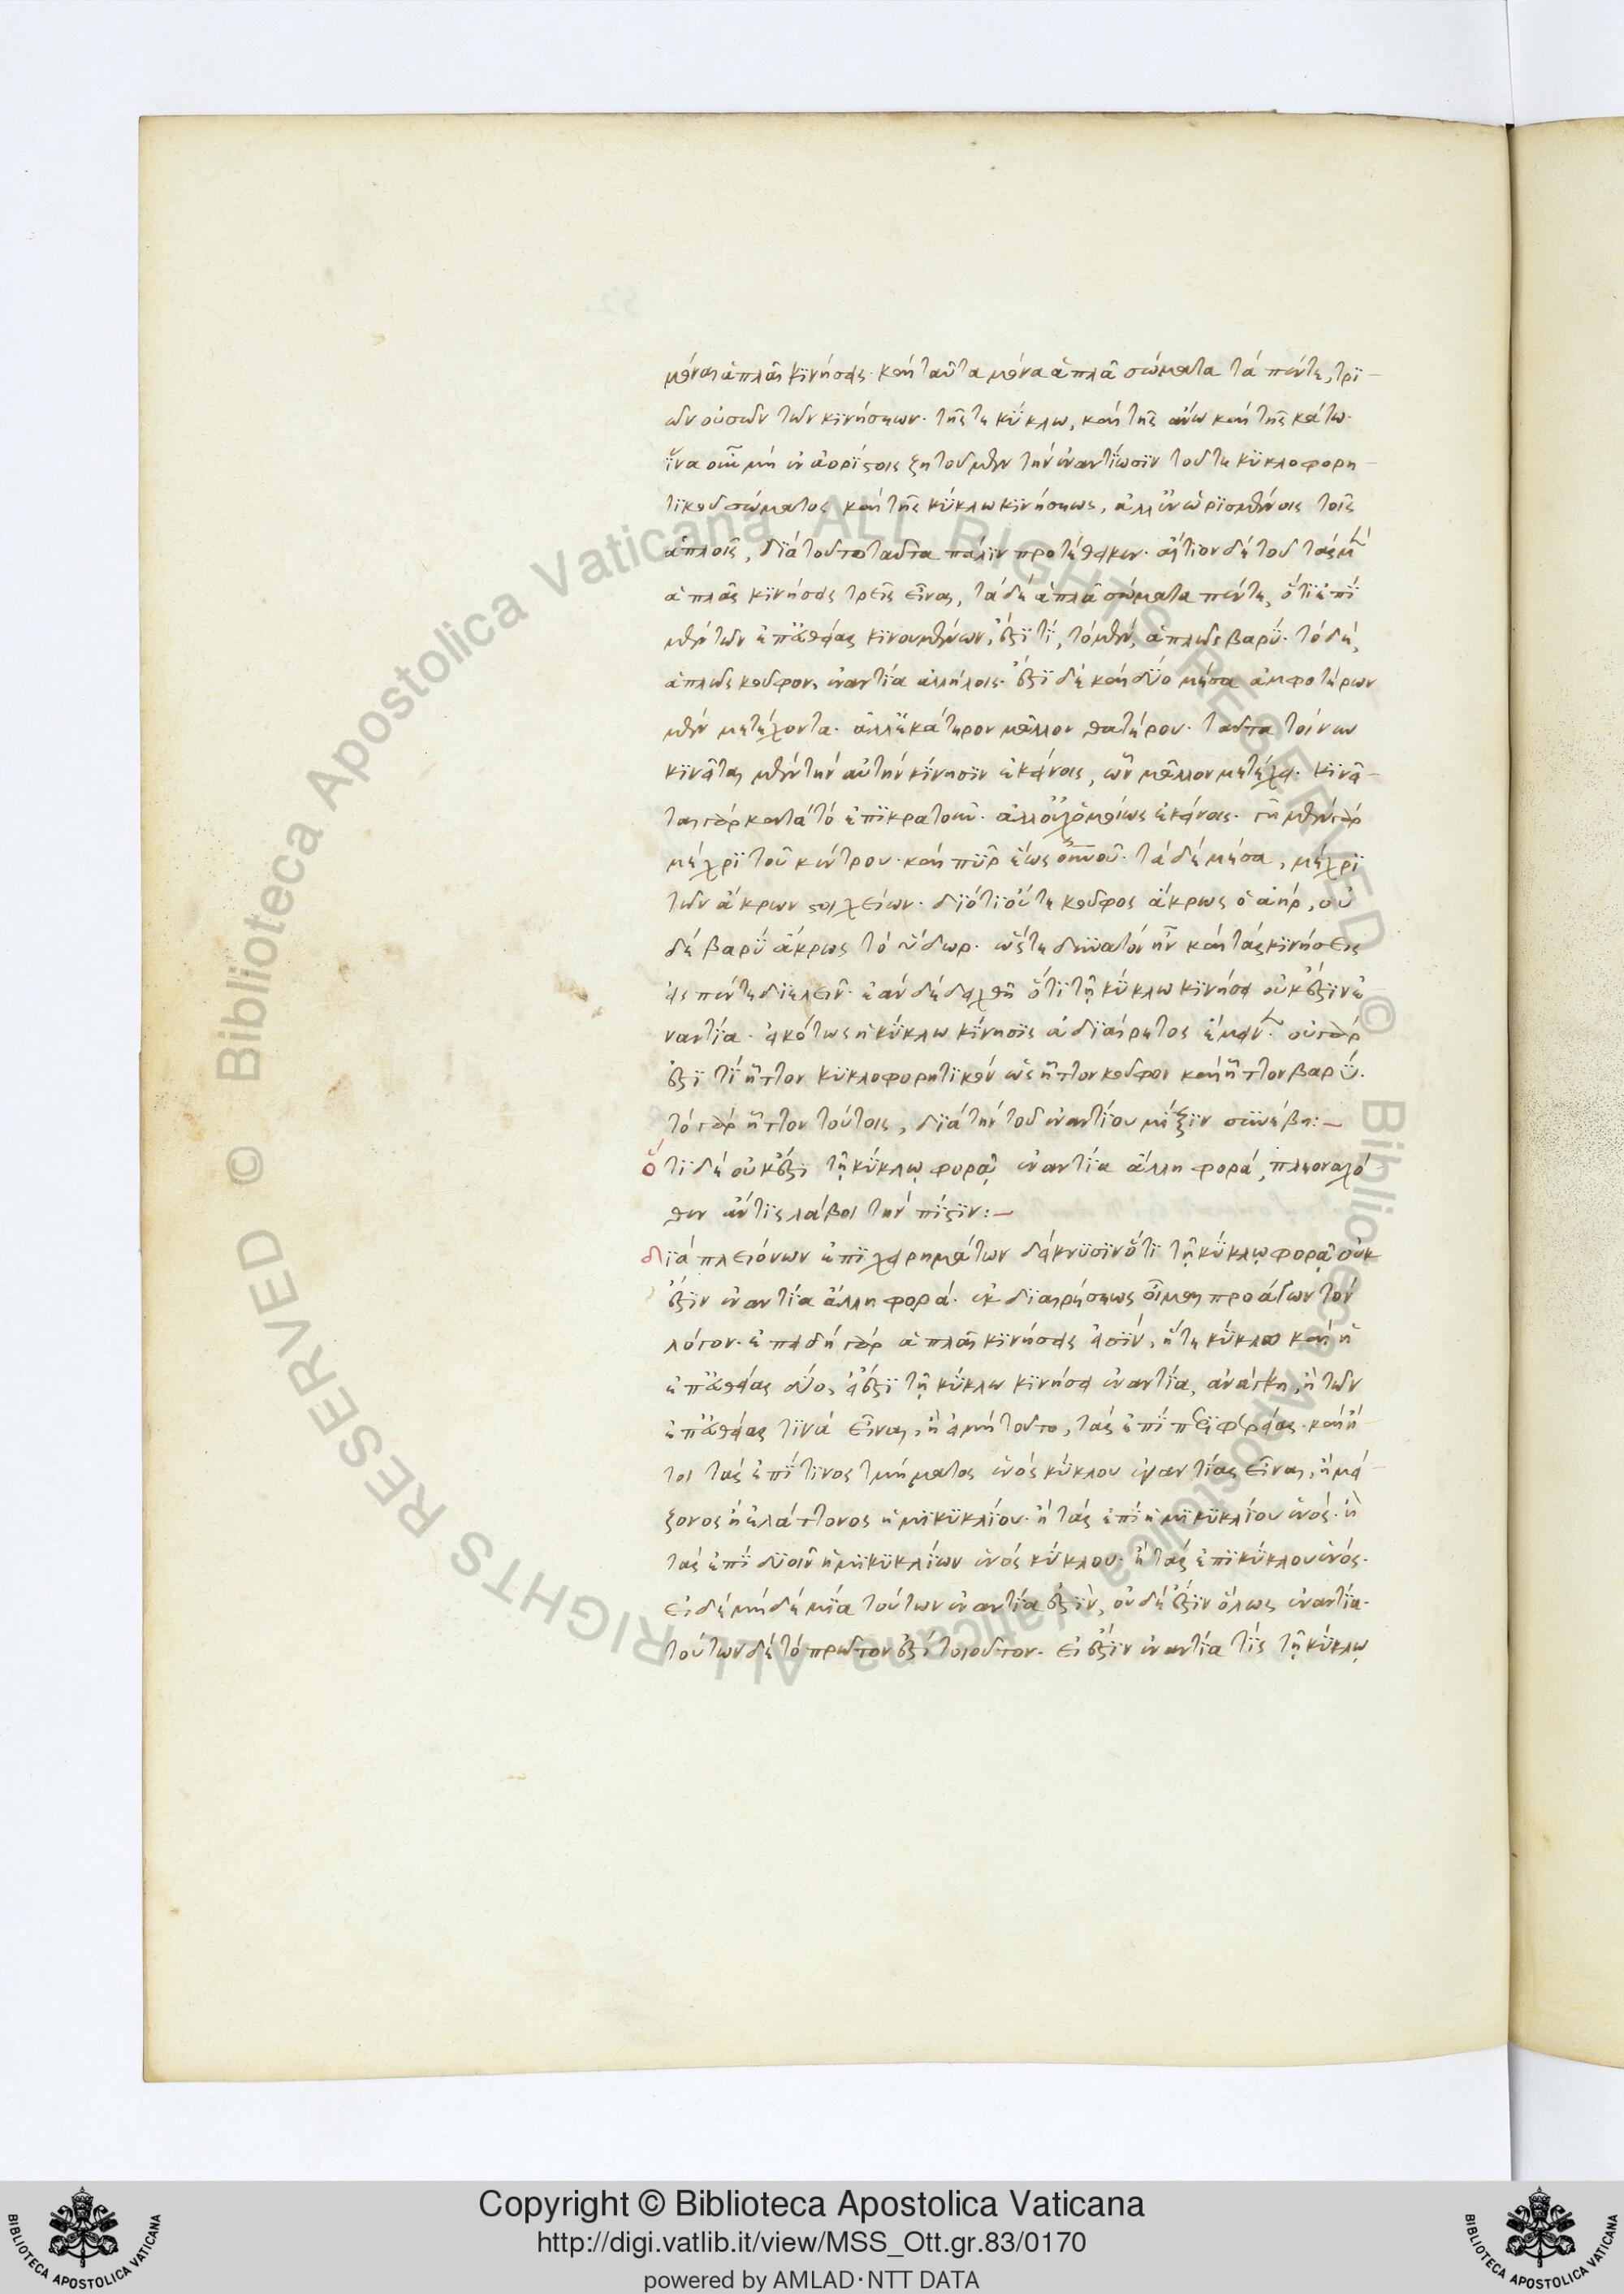 μόνας ἁπλᾶς κϊνήσεις· καὶ ταῦτα μόνα ἁπλᾶ σώματα τὰ πέντε, τρϊ-
ῶν οὐσῶν τῶν κινήσεων· τῆς τε κύκλω, καὶ τῆς ἄνω καὶ τῆς κάτω·
ἵνα οὖν μὴ ἐν ἀορίστοις ζητοῦμεν τὴν ἐναντίωσϊν τοῦ τε κϋκλοφορη-
τϊκοῦ σώματος καὶ τῆς κύκλω κϊνήσεως, ἀλλ' ἐν ὡρϊσμένοις τοῖς
ἁπλοῖς, δϊὰ τοῦτο ταῦτα πάλϊν προτέθεικεν· αἴτιον δὲ τοῦ τὰς μὲν
ἁπλᾶς κϊνήσεις τρεῖς εἶναι, τὰ δὲ ἁπλᾶ σώματα πέντε, ὅτϊ ἐπὶ
μὲν τῶν ἐπ' εὐθείας κϊνουμένων, ἔστϊ τὶ, τὸ μὲν, ἁπλῶς βαρύ· τὸ δὲ,
ἁπλῶς κοῦφον, ἐναντία ἀλλήλοις· ἔστϊ δὲ καὶ δύο μέσα ἀμφοτέρων
μὲν μετέχοντα· ἀλλ' ἑκάτερον μᾶλλον θατέρου· ταῦτα τοίνυν
κϊνεῖται μὲν τὴν αὐτὴν κίνησϊν ἐκείνοις, ὧν μᾶλλον μετέχει· κϊνεῖ-
ται γὰρ κατὰ τὸ ἐπϊκρατοῦν· ἀλλ' οὐχ ὁμοίως ἐκείνοις· γῆ μὲν γὰρ
μέχρϊ τοῦ κέντρου· καὶ πῦρ ἕως οὐνοῦ· τὰ δὲ μέσα, μέχρϊ
τῶν ἄκρων στοιχείων· διότϊ οὔτε κοῦφος ἄκρως ὁ ἀὴρ, οὐ
δὲ βαρὺ ἄκρως τὸ ὕδωρ· ὥστε δυνατὸν ἦν καὶ τὰς κϊνήσεις
εἰς πέντε διελεῖν· ἐὰν δὲ δειχθῆ ὅτϊ τῇ κύκλω κϊνήσει οὐκ ἔστϊν ἐ
ναντία· εἰκότως ἡ κύκλω κίνησϊς ἀδϊαίρετος ἔμεινεν· οὐ γὰρ
ἔστϊ τὶ ἧττον κϋκλοφορητϊκὸν ὡς ἧττον κοῦφον καὶ ἧττον βαρύ·
τὸ γὰρ ἧττον τούτοις, δϊὰ τὴν τοῦ ἐναντίου μίξϊν συνέβη:-
ὅτϊ δὲ οὐκ ἔστϊ τῇ κύκλῳ φορᾷ ἐναντία ἄλλη φορά, πλεοναχό
θεν ἄν τϊς λάβοι τὴν πίστϊν:-
δϊὰ πλειόνων ἐπϊχειρημάτων δείκνυσϊν ὅτϊ τῇ κύκλῳ φορᾷ οὐκ
ἔστϊν ἐναντία ἄλλη φορά· ἐκ δϊαιρέσεως οἶμαι προάγων τὸν
λόγον· ἐπειδὴ γὰρ ἁπλαῖ κϊνήσεις εἰσὶν, ἥ τε κύκλω καὶ ἡ
ἐπ' εὐθείας δύο, εἰ ἔστϊ τῇ κύκλω κϊνήσει ἐναντία, ἀνάγκη, ἢ τῶν
ἐπ' εὐθείας τϊνὰ εἶναι, ἢ εἰ μὴ τοῦτο, τὰς ἐπὶ περϊφερείας· καὶ ἤ
τοι τὰς ἐπί τϊνος τμήματος ἑνὸς κύκλου ἐναντίας εἶναι, ἢ μεί-
ζονος ἢ ἐλάττονος ἡμϊκϋκλίου· ἢ τὰς ἐπὶ ἡμϊκϋκλίου ἑνός· ἢ
τὰς ἐπὶ δϋοῖν ἡμϊκϋκλίων ἑνὸς κύκλου· ἢ τὰς ἐπϊ κύκλου ἑνός·
εἰ δὲ μηδὲ μία τούτων ἐναντία ἐστϊν, οὐδὲ ἔστϊν ὅλως ἐναντία·
τούτων δὲ τὸ πρῶτον ἐστὶ τοιοῦτον· εἰ ἔστϊν ἐναντία τὶς τῇ κύκλῳ
Copyright © Biblioteca Apostolica Vaticana
http://digi.vatlib.it/view/MSS_Ott.gr.83/0170
powered by AMLAD·NTT DATA